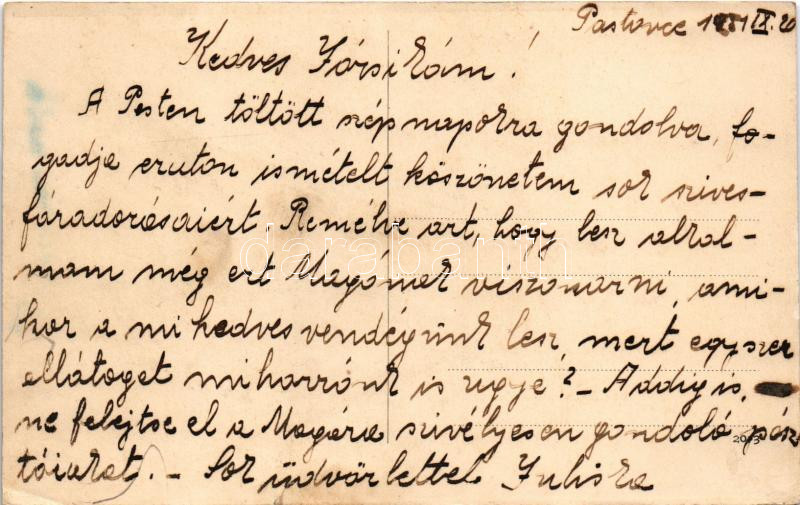 Pastovce 1931 IX. 20
Kedves Jársikám!
A Pesten töltött szép napokra gondolva, fo-
gadja ezuton ismételt köszönetem sok szives-
fáradozásaiért. Remélve azt, hogy lesz alkal-
mam még ezt Magának viszonozni, ami-
kor a mi kedves vendégünk lesz, mert egyszer
ellátoget mihozzánk is ugye? - Addig is,
ne felejtse el a Magára szivélyesen gondoló pász
tóiakat. - Sok üdvözlettel Juliska
darabanth